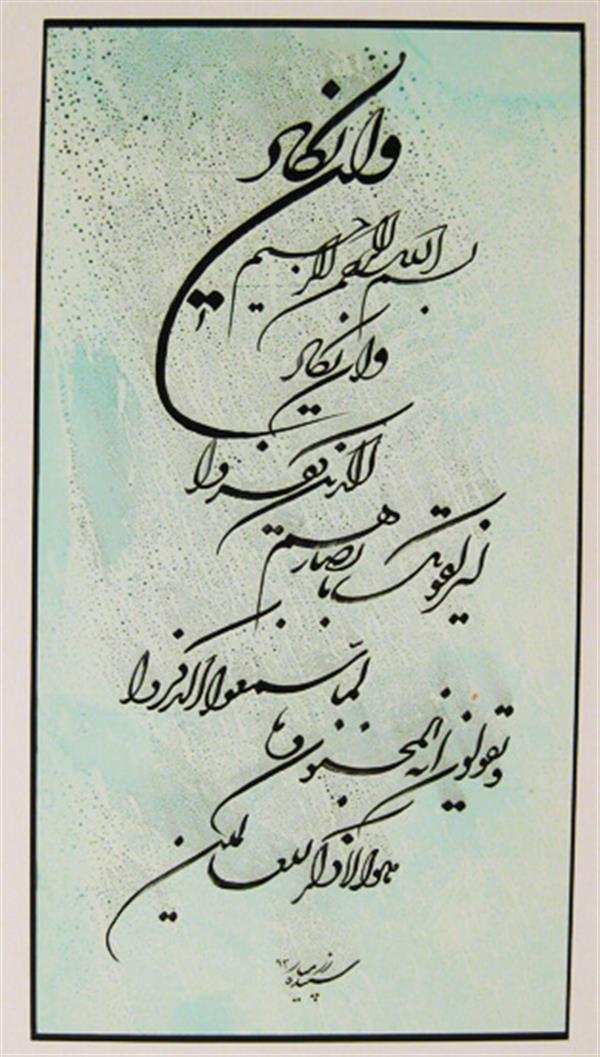 وان یکاد
بسم الله الرحمن الرحیم
وان یکاد
الذین کفروا
لیزلقونک بابصارهم
لما سمعوا الذکر وا
و یقولون انه لمجنون وما
هوالا ذکر للعالمین
سپیده